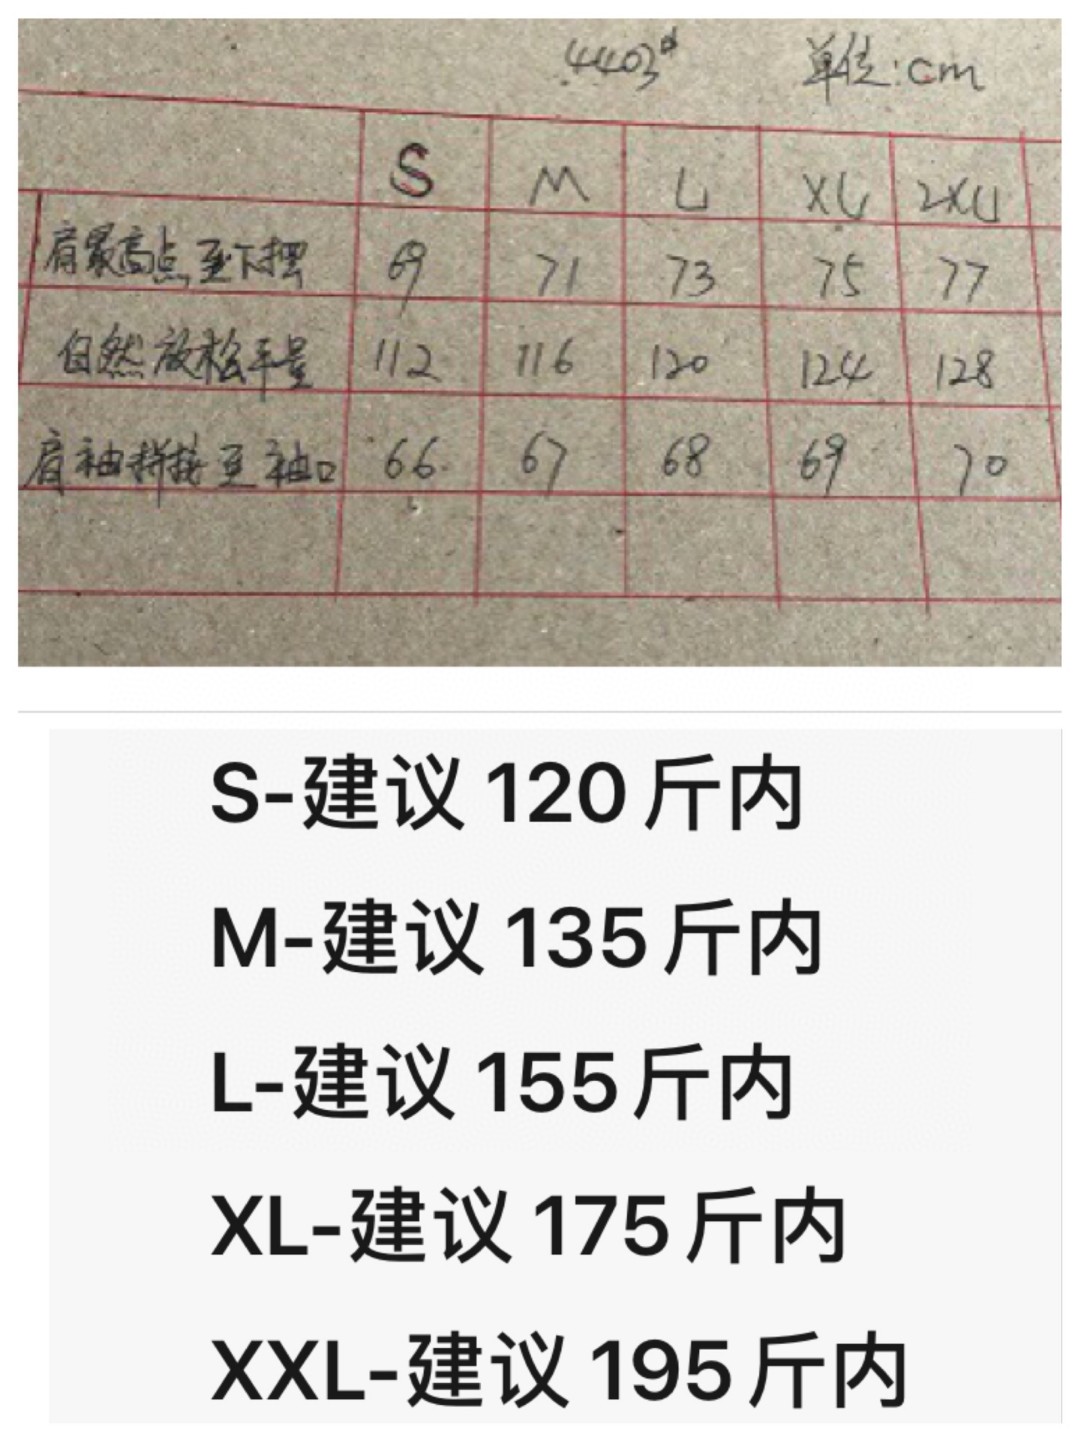 4403# 单位:cm
S M L XL 2XL
肩最高点至下摆 69 71 73 75 77
自然放松平量 112 116 120 124 128
肩袖拼接至袖口 66 67 68 69 70
S-建议 120 斤内
M-建议 135 斤内
L-建议 155 斤内
XL-建议 175 斤内
XXL-建议 195 斤内